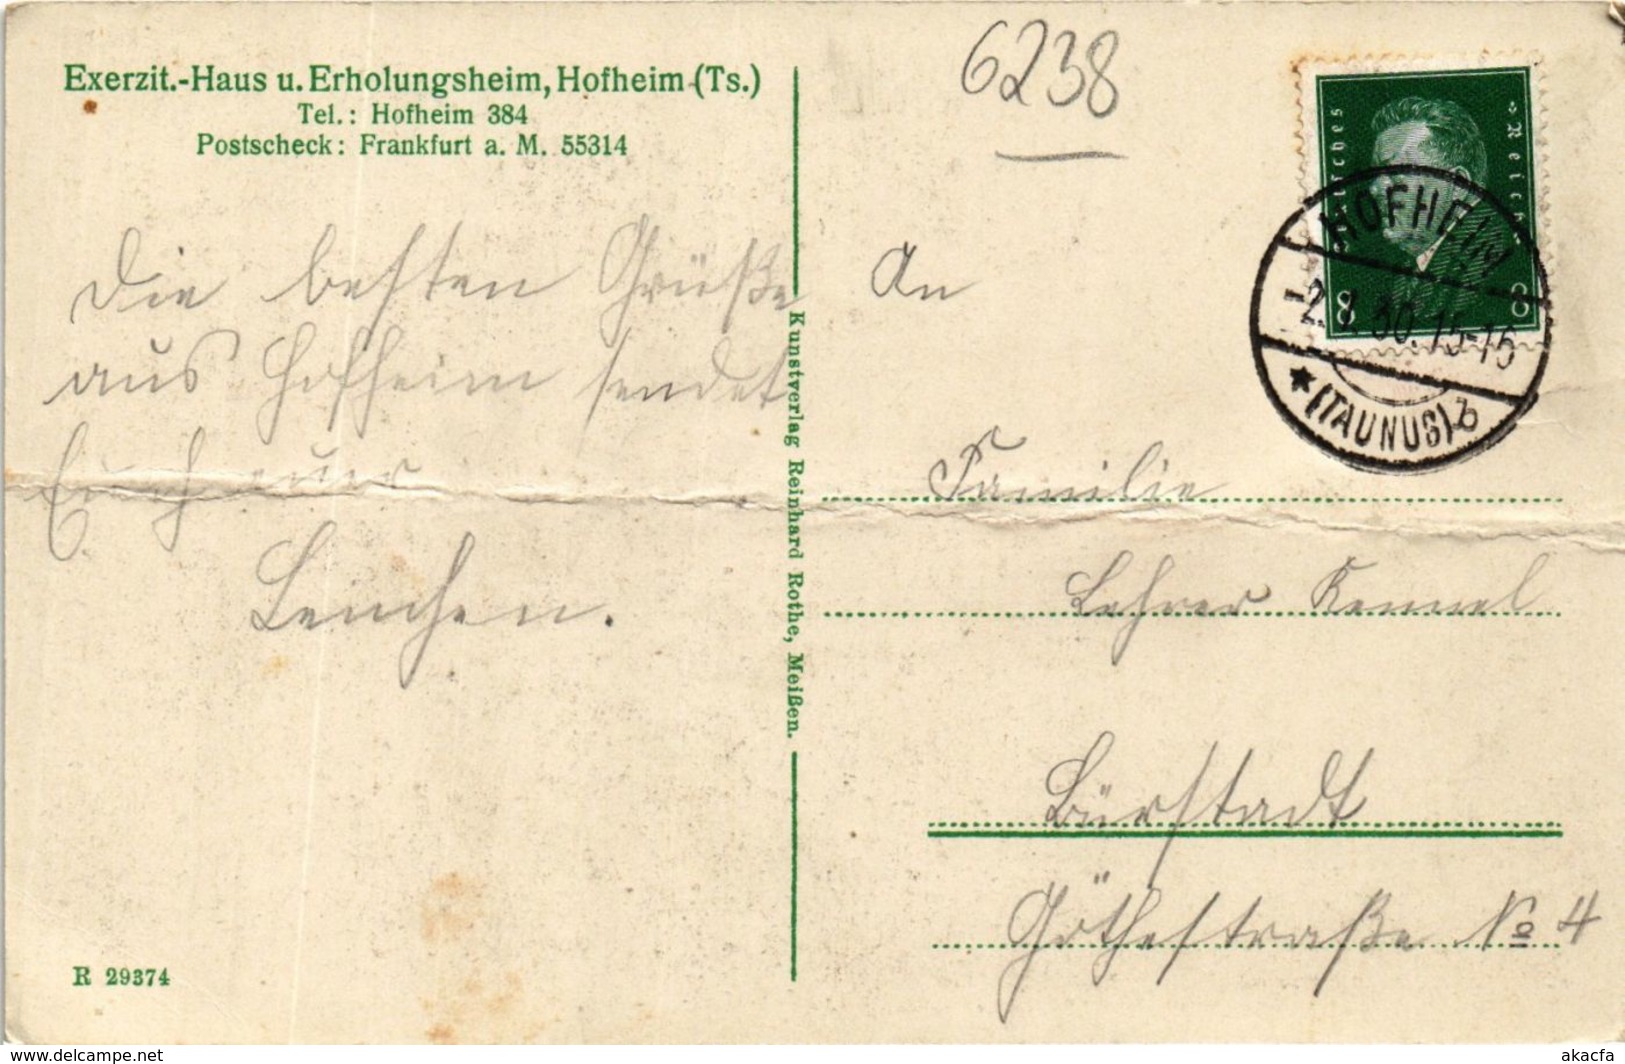 Exerzit.-Haus u. Erholungsheim, Hofheim (Ts.)
Tel.: Hofheim 384
Postscheck: Frankfurt a. M. 55314
6238
Die besten Grüße
aus Hofheim sendet
Euch euer
Lenchen.
R 29374
Kunstverlag Reinhard Rothe, Meißen.
8 8
HOFHEIM
30.15-16
(TAUNUS) b
An
Familie
Lehrer Kennel
Bürstadt
Göthestraße No 4
www.delcampe.net
akacfa